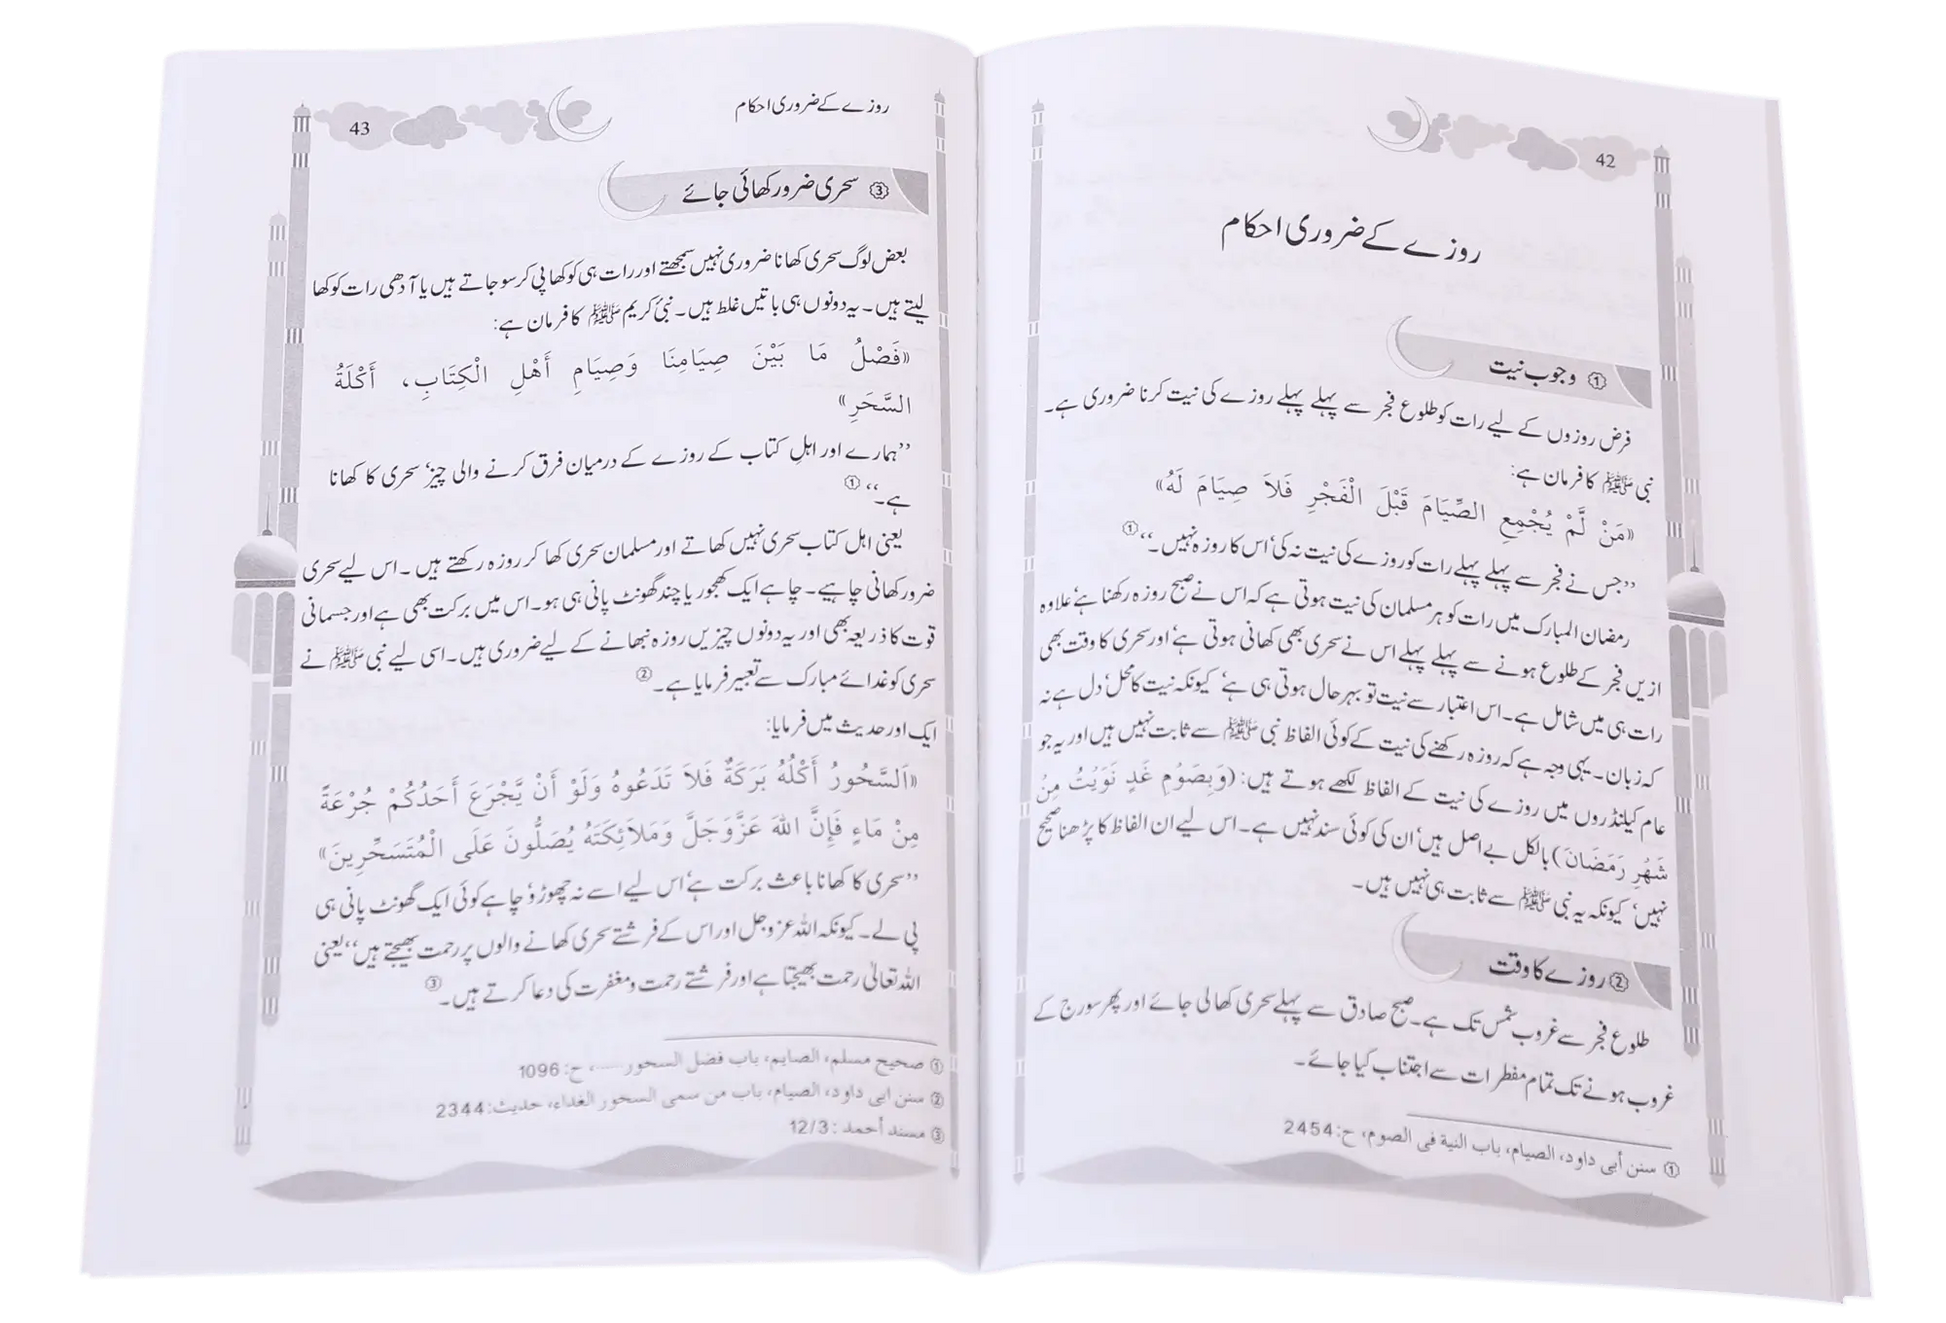 42
روزے کے ضروری احکام
① وجوب نیت
فرض روزوں کے لیے رات کو طلوع فجر سے پہلے پہلے روزے کی نیت کرنا ضروری ہے۔
نبی ﷺ کا فرمان ہے:
«مَنْ لَّمْ يُجْمِعِ الصِّيَامَ قَبْلَ الْفَجْرِ فَلَا صِيَامَ لَهُ»
’’جس نے فجر سے پہلے پہلے رات کو روزے کی نیت نہ کی‘ اس کا روزہ نہیں۔‘‘ ①
رمضان المبارک میں رات کو ہر مسلمان کی نیت ہوتی ہے کہ اس نے صبح روزہ رکھنا ہے‘ علاوہ
ازیں فجر کے طلوع ہونے سے پہلے پہلے اس نے سحری بھی کھانی ہوتی ہے‘ اور سحری کا وقت بھی
رات ہی میں شامل ہے۔ اس اعتبار سے نیت تو بہر حال ہوتی ہی ہے‘ کیونکہ نیت کا محل‘ دل ہے نہ
کہ زبان۔ یہی وجہ ہے کہ روزہ رکھنے کی نیت کے کوئی الفاظ نبی ﷺ سے ثابت نہیں ہیں اور یہ جو
عام کیلنڈروں میں روزے کی نیت کے الفاظ لکھے ہوتے ہیں: (وَبِصَوْمِ غَدٍ نَوَيْتُ مِنْ
شَهْرِ رَمَضَانَ) بالکل بے اصل ہیں‘ ان کی کوئی سند نہیں ہے۔ اس لیے ان الفاظ کا پڑھنا صحیح
نہیں‘ کیونکہ یہ نبی ﷺ سے ثابت ہی نہیں ہیں۔
② روزے کا وقت
طلوع فجر سے غروب شمس تک ہے۔ صبح صادق سے پہلے سحری کھا لی جائے اور پھر سورج کے
غروب ہونے تک تمام مفطرات سے اجتناب کیا جائے۔
① سنن أبی داود، الصیام، باب النیة فی الصوم، ح: 2454
روزے کے ضروری احکام
43
③ سحری ضرور کھائی جائے
بعض لوگ سحری کھانا ضروری نہیں سمجھتے اور رات ہی کو کھا پی کر سو جاتے ہیں یا آدھی رات کو کھا
لیتے ہیں۔ یہ دونوں ہی باتیں غلط ہیں۔ نبیٔ کریم ﷺ کا فرمان ہے:
«فَصْلُ مَا بَيْنَ صِيَامِنَا وَصِيَامِ أَهْلِ الْكِتَابِ، أَكْلَةُ
السَّحَرِ»
’’ہمارے اور اہلِ کتاب کے روزے کے درمیان فرق کرنے والی چیز‘ سحری کا کھانا
ہے۔‘‘ ①
یعنی اہل کتاب سحری نہیں کھاتے اور مسلمان سحری کھا کر روزہ رکھتے ہیں۔ اس لیے سحری
ضرور کھانی چاہیے۔ چاہے ایک کھجور یا چند گھونٹ پانی ہی ہو۔ اس میں برکت بھی ہے اور جسمانی
قوت کا ذریعہ بھی اور یہ دونوں چیزیں روزہ نبھانے کے لیے ضروری ہیں۔ اسی لیے نبی ﷺ نے
سحری کو غدائے مبارک سے تعبیر فرمایا ہے۔ ②
ایک اور حدیث میں فرمایا:
«اَلسَّحُورُ أَكْلُهُ بَرَكَةٌ فَلَا تَدَعُوهُ وَلَوْ أَنْ يَّجْرَعَ أَحَدُكُمْ جُرْعَةً
مِنْ مَاءٍ فَإِنَّ اللهَ عَزَّوَجَلَّ وَمَلَائِكَتَهُ يُصَلُّونَ عَلَى الْمُتَسَحِّرِينَ»
’’سحری کا کھانا باعث برکت ہے‘ اس لیے اسے نہ چھوڑو‘ چاہے کوئی ایک گھونٹ پانی ہی
پی لے۔ کیونکہ اللہ عزوجل اور اس کے فرشتے سحری کھانے والوں پر رحمت بھیجتے ہیں‘‘ یعنی
اللہ تعالیٰ رحمت بھیجتا ہے اور فرشتے رحمت و مغفرت کی دعا کرتے ہیں۔ ③
① صحیح مسلم، الصیام، باب فضل السحور.....، ح: 1096
② سنن ابی داود، الصیام، باب من سمی السحور الغداء، حدیث: 2344
③ مسند أحمد: 12/3